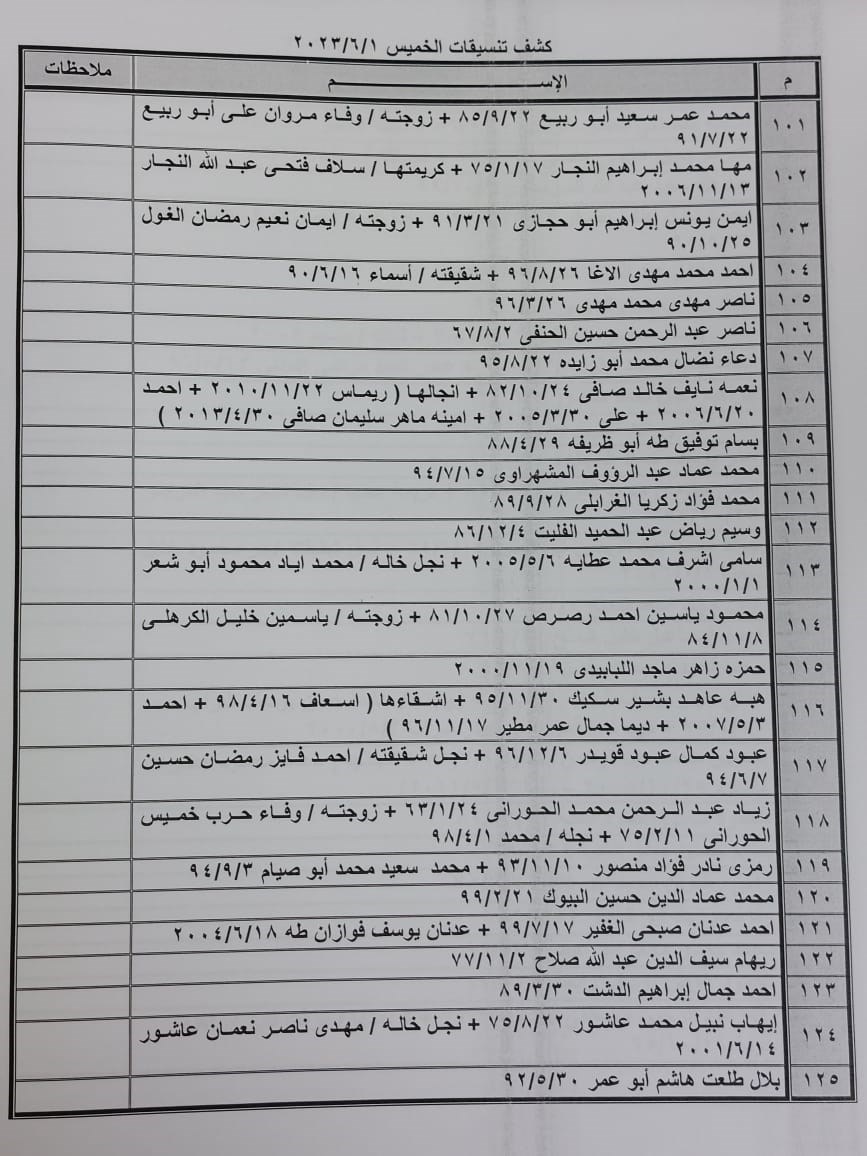 كشف تنسيقات الخميس ٢٠٢٣/٦/١
م الإســـــــم ملاحظات
١٠١ محمد عمر سعيد أبو ربيع ٨٥/٩/٢٢ + زوجته / وفاء مروان على أبو ربيع
٩١/٧/٢٢
١٠٢ مها محمد إبراهيم النجار ٧٥/١/١٧ + كريمتها / سلاف فتحى عبد الله النجار
٢٠٠٦/١١/١٣
١٠٣ ايمن يونس إبراهيم أبو حجازى ٩١/٣/٢١ + زوجته / ايمان نعيم رمضان الغول
٩٠/١٠/٢٥
١٠٤ احمد محمد مهدى الاغا ٩٦/٨/٢٦ + شقيقته / أسماء ٩٠/٦/١٦
١٠٥ ناصر مهدى محمد مهدى ٩٦/٣/٢٦
١٠٦ ناصر عبد الرحمن حسين الحنفى ٦٧/٨/٢
١٠٧ دعاء نضال محمد أبو زايده ٩٥/٨/٢٢
١٠٨ نعمه نايف خالد صافى ٨٢/١٠/٢٤ + انجالها ( ريماس ٢٠١٠/١١/٢٢ + احمد
٢٠٠٦/٦/٢٠ + على ٢٠٠٥/٣/٣٠ + امينه ماهر سليمان صافى ٢٠١٣/٤/٣٠ )
١٠٩ بسام توفيق طه أبو ظريفه ٨٨/٤/٢٩
١١٠ محمد عماد عبد الرؤوف المشهراوى ٩٤/٧/١٥
١١١ محمد فؤاد زكريا الغرابلى ٨٩/٩/٢٨
١١٢ وسيم رياض عبد الحميد الفليت ٨٦/١٢/٤
١١٣ سامى اشرف محمد عطايه ٢٠٠٥/٥/٦ + نجل خاله / محمد اياد محمود أبو شعر
٢٠٠٠/١/١
١١٤ محمود ياسين احمد رصرص ٨١/١٠/٢٧ + زوجته / ياسمين خليل الكرهلى
٨٤/١١/٨
١١٥ حمزه زاهر ماجد اللبابيدى ٢٠٠٠/١١/١٩
١١٦ هبه عاهد بشير سكيك ٩٥/١١/٣٠ + اشقاءها ( اسعاف ٩٨/٤/١٦ + احمد
٢٠٠٧/٥/٣ + ديما جمال عمر مطير ٩٦/١١/١٧ )
١١٧ عبود كمال عبود قويدر ٩٦/١٢/٦ + نجل شقيقته / احمد فايز رمضان حسين
٩٤/٦/٧
١١٨ زياد عبد الرحمن محمد الحورانى ٦٣/١/٢٤ + زوجته / وفاء حرب خميس
الحورانى ٧٥/٢/١١ + نجله / محمد ٩٨/٤/١
١١٩ رمزى نادر فؤاد منصور ٩٣/١١/١٠ + محمد سعيد محمد أبو صيام ٩٤/٩/٣
١٢٠ محمد عماد الدين حسين البيوك ٩٩/٢/٢١
١٢١ احمد عدنان صبحى الغفير ٩٩/٧/١٧ + عدنان يوسف فوازان طه ٢٠٠٤/٦/١٨
١٢٢ ريهام سيف الدين عبد الله صلاح ٧٧/١١/٢
١٢٣ احمد جمال إبراهيم الدشت ٨٩/٣/٣٠
١٢٤ إيهاب نبيل محمد عاشور ٧٥/٨/٢٢ + نجل خاله / مهدى ناصر نعمان عاشور
٢٠٠١/٦/١٤
١٢٥ بلال طلعت هاشم أبو عمر ٩٢/٥/٣٠